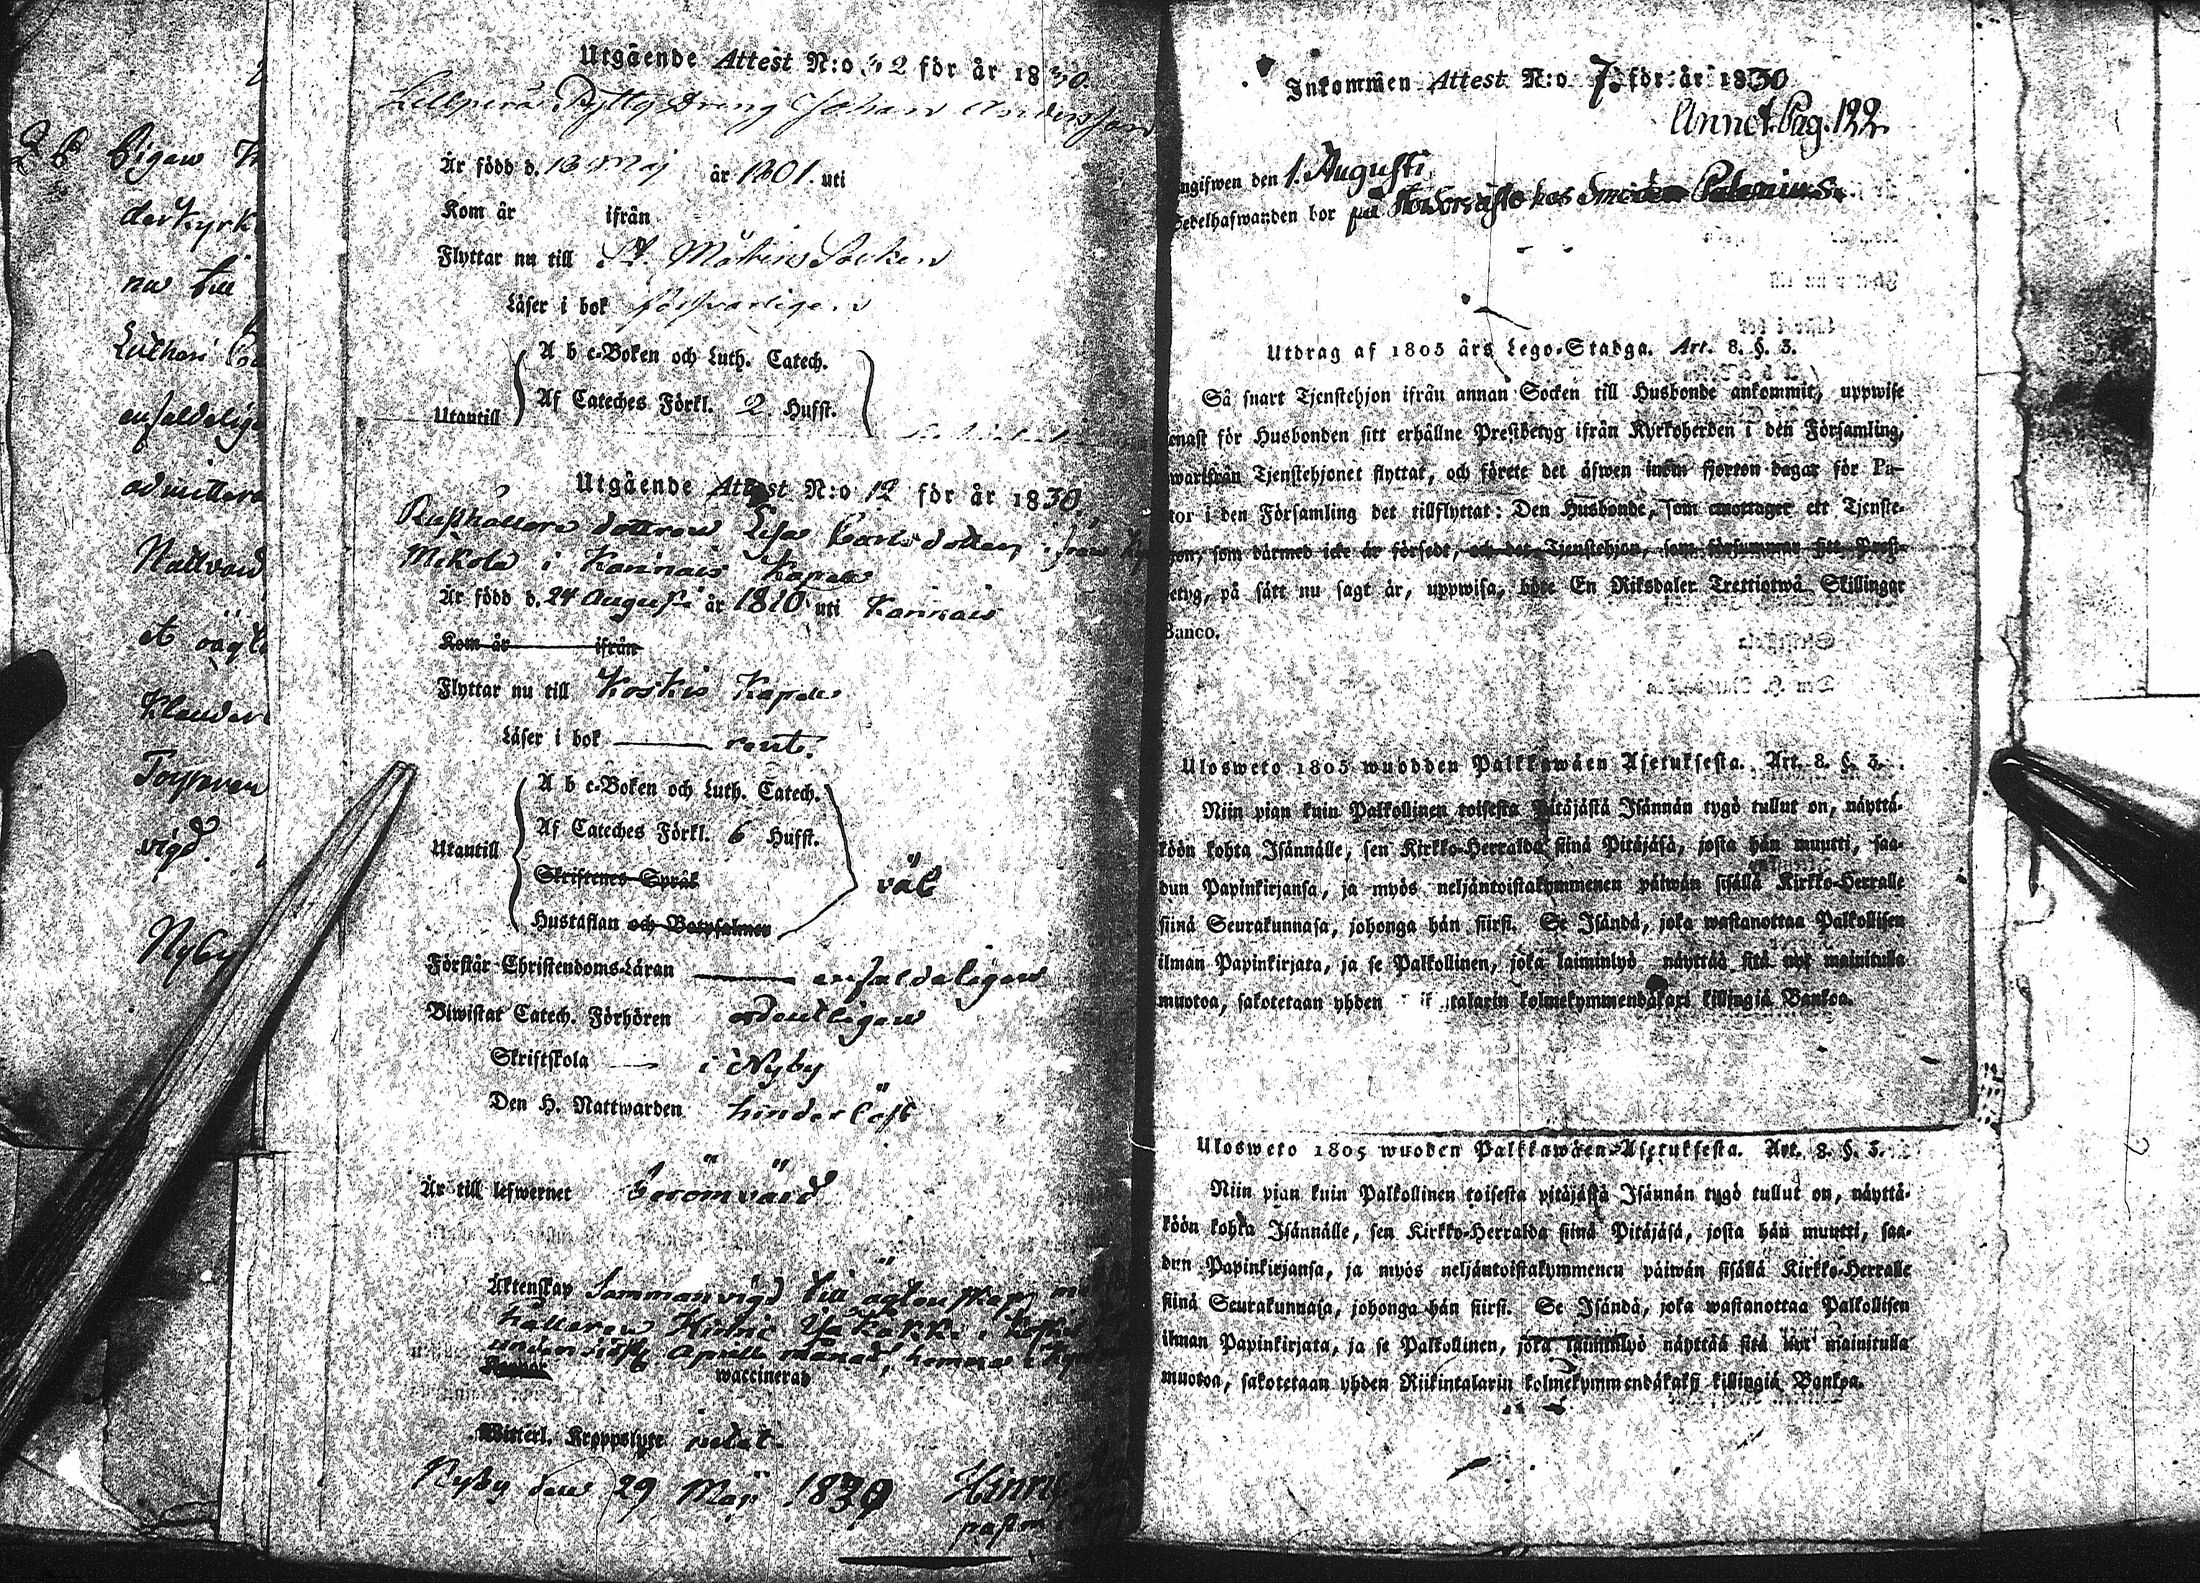 26 Pigan
derkyrk
nu till
Lutheri
enfaldelige
admittera
Nattvard
et ägt
Klander
Toyvven
vigd.
Nyby
Utgående Attest N:o 32 för år 1830.
Dräng Johan Andersson
Är född d. 13 Maj år 1801. uti
Kom år ifrån
Flyttar nu till St. Mårtens Socken
Läser i bok försvarligen
A b c-Boken och Luth. Catech.
Utantill Af Cateches Förkl. 2 Hufst.
Utgående Attest N:o 12 för år 1830.
Rusthållare dottren Lisa Carlsdotter, ifrån
Mikola i Karinais Kapell
Är född d. 24 Augusti år 1810 uti Karinais
Kom år ifrån
Flyttar nu till Koskis Kapell
Läser i bok rent.
A b c-Boken och Luth. Catech.
Af Cateches Förkl. 6 Hufst.
Utantill väl
Skriftenes Språk
Hustaflan och Botpsalmer
Förstår Christendoms-Läran enfaldeligen
Biwistat Catech. Förhören ordentligen
Skriftskola i Nyby
Den H. Nattwarden hinderlöst
Är till lefwernet berömvärd
Äktenskap Sammanvigd till ägtenskap
hålleren Hinric
under sistl. Aprill månad,
waccinerad
Witterl. Kroppslyte
Nyby den 29 Maji 1830 Hinric
past
Inkommen Attest N:o 7. för år 1830
Annot. Pag. 122.
ngifwen den 1. Augusti
Sedelhafwanden bor på hos
Utdrag af 1805 års Lego-Stadga. Art. 8. §. 3.
Så snart Tjenstehjon ifrån annan Socken till Husbonde ankommit, uppwise
enast för Husbonden sitt erhållne Prestbetyg ifrån Kyrkoherden i den Församling,
warifrån Tjenstehjonet flyttat, och förete det äfwen inom fjorton dagar för Pa-
tor i den Församling det tillflyttat: Den Husbonde, som emottager ett Tjenste-
jon, som därmed icke är försedt, och det Tjenstehjon, som försummar sitt Prest-
etyg, på sätt nu sagt är, uppwisa, böte En Riksdaler Trettiotwå Skillingar
Banco.
Ulosweto 1805 wuodden Palkkawäen Asetuksesta. Art. 8. §. 3.
Niin pian kuin Palkollinen toisesta Pitäjästä Isännän tygö tullut on, näyttä-
köön kohta Isännälle, sen Kirkko-Herralda siinä Pitäjäsä, josta hän muutti, saa-
dun Papinkirjansa, ja myös neljäntoistakymmenen päiwän sisällä Kirkko-Herralle
siinä Seurakunnasa, johonga hän siirsi. Se Isändä, joka wastanottaa Palkollisen
ilman Papinkirjata, ja se Palkollinen, joka laiminlyö näyttää sitä nyt mainitulla
muotoa, sakotetaan yhden talarin kolmekymmendäkaxi killingiä Bankoa.
Ulosweto 1805 wuoden Palkkawäen-Asetuksesta. Art. 8. §. 3.
Niin pian kuin Palkollinen toisesta pitäjästä Isännän tygö tullut on, näyttä-
köön kohta Isännälle, sen Kirkko-Herralda siinä Pitäjäsä, josta hän muutti, saa-
dun Papinkirjansa, ja myös neljäntoistakymmenen päiwän sisällä Kirkko-Herralle
siinä Seurakunnasa, johonga hän siirsi. Se Isändä, joka wastanottaa Palkollisen
ilman Papinkirjata, ja se Palkollinen, joka laiminlyö näyttää sitä nyt mainitulla
muotoa, sakotetaan yhden Riikintalarin kolmekymmendäkaksi killingiä Bankoa.